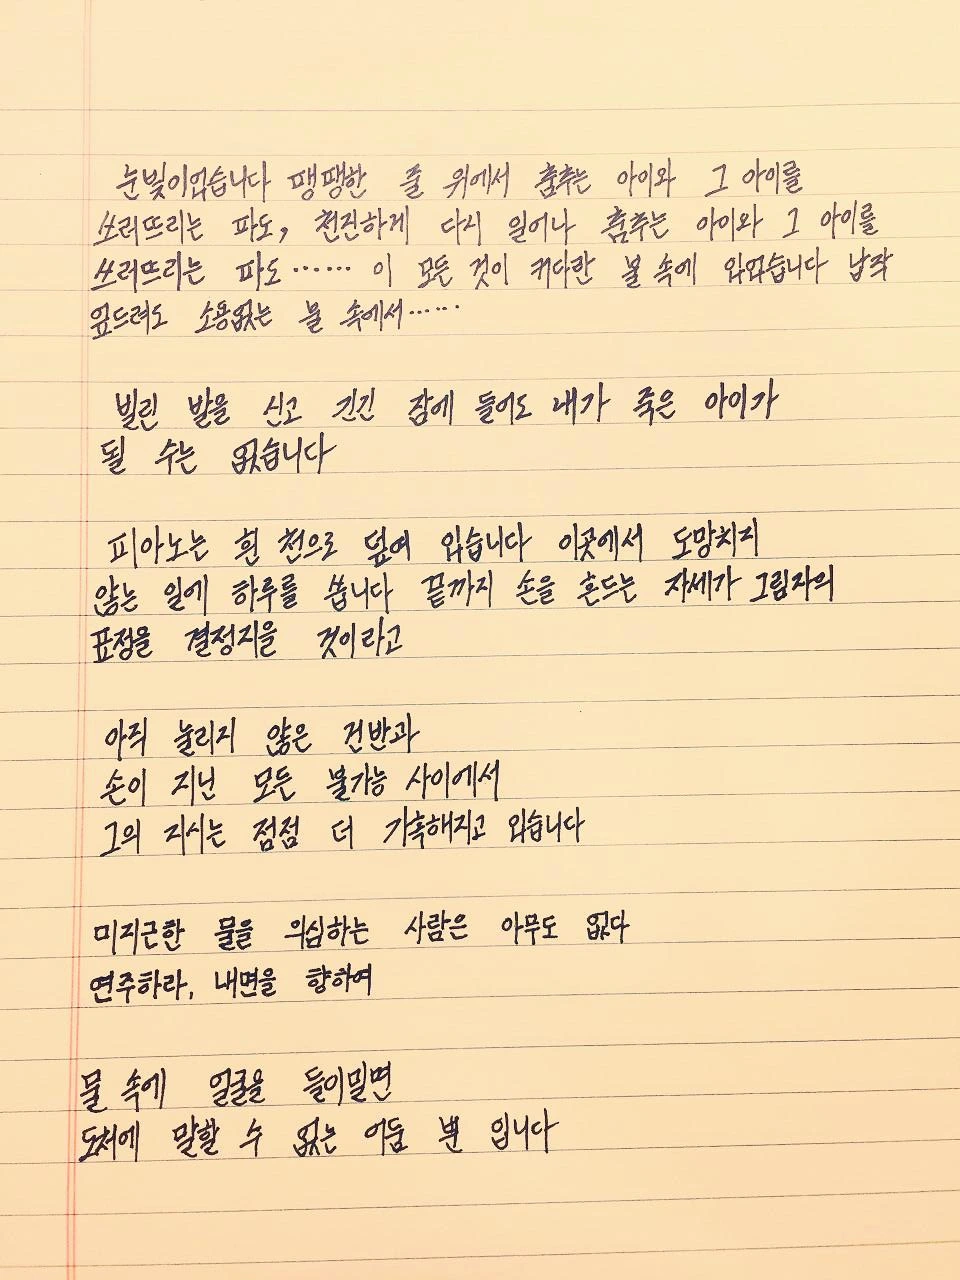 눈빛이었습니다 팽팽한 줄 위에서 춤추는 아이와 그 아이를
쓰러뜨리는 파도, 천진하게 다시 일어나 춤추는 아이와 그 아이를
쓰러뜨리는 파도…… 이 모든 것이 커다란 물 속에 있었습니다 납작
엎드려도 소용없는 물 속에서……
빌린 발을 신고 긴긴 잠에 들어도 내가 죽은 아이가
될 수는 없습니다
피아노는 흰 천으로 덮여 있습니다 이곳에서 도망치지
않는 일에 하루를 씁니다 끝까지 손을 흔드는 자세가 그림자의
표정을 결정지을 것이라고
아직 눌리지 않은 건반과
손이 지닌 모든 불가능 사이에서
그의 지시는 점점 더 가혹해지고 있습니다
미지근한 물을 의심하는 사람은 아무도 없다
연주하라, 내면을 향하여
물 속에 얼굴을 들이밀면
도처에 말할 수 없는 어둠 뿐 입니다